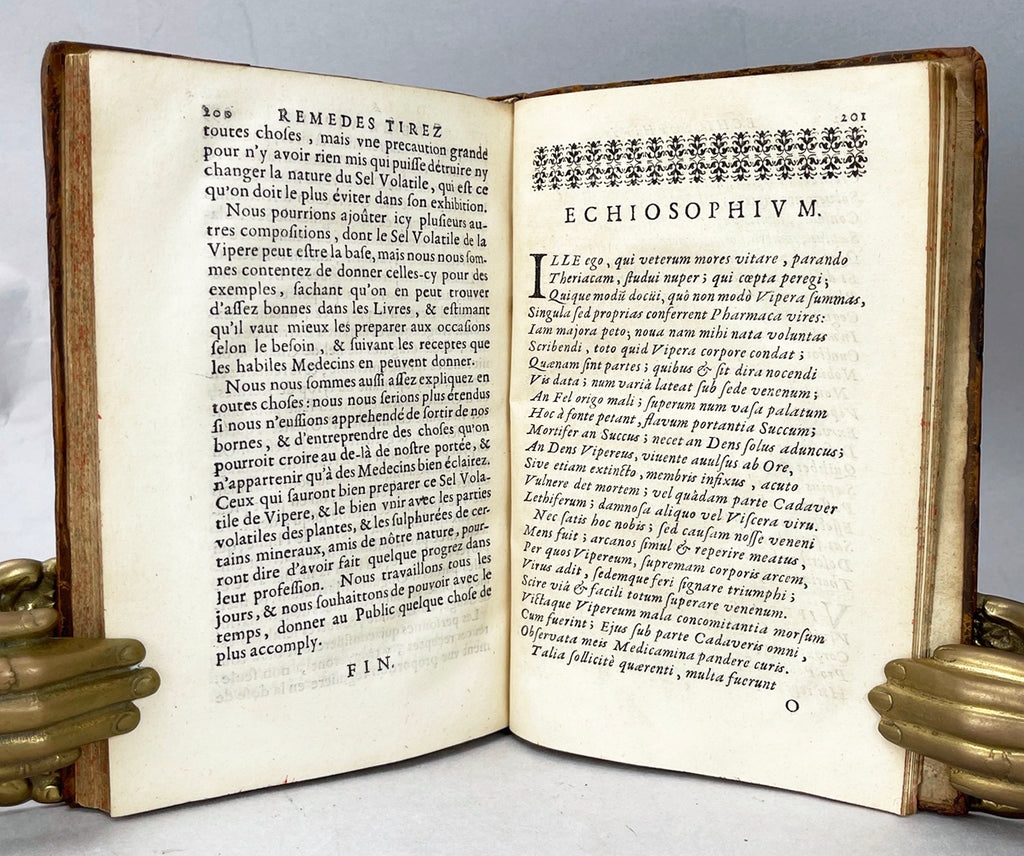 200 REMEDES TIREZ
toutes choſes, mais vne precaution grande
pour n'y avoir rien mis qui puiſſe détruire ny
changer la nature du Sel Volatile, qui eſt ce
qu'on doit le plus éviter dans ſon exhibition.
Nous pourrions ajoûter icy pluſieurs au-
tres compoſitions, dont le Sel Volatile de la
Vipere peut eſtre la baſe, mais nous nous ſom-
mes contentez de donner celles-cy pour des
exemples, ſachant qu'on en peut trouver
d'aſſez bonnes dans les Livres, & eſtimant
qu'il vaut mieux les preparer aux occaſions
ſelon le beſoin, & ſuivant les receptes que
les habiles Medecins en peuvent donner.
Nous nous ſommes auſſi aſſez expliquez en
toutes choſes: nous nous ſerions plus étendus
ſi nous n'euſſions apprehendé de ſortir de nos
bornes, & d'entreprendre des choſes qu'on
pourroit croire au de-là de noſtre portée, &
n'appartenir qu'à des Medecins bien éclairez.
Ceux qui ſauront bien preparer ce Sel Vola-
tile de Vipere, & le bien vnir avec les parties
volatiles des plantes, & les ſulphurées de cer-
tains mineraux, amis de nôtre nature, pour-
ront dire d'avoir fait quelque progrez dans
leur profeſſion. Nous travaillons tous les
jours, & nous ſouhaittons de pouvoir avec le
temps, donner au Public quelque choſe de
plus accomply.
FIN.
201
ECHIOSOPHIVM.
ILLE ego, qui veterum mores vitare, parando
Theriacam, ſtudui nuper; qui cœpta peregi;
Quique modū docui, quò non modò Vipera ſummas,
Singula ſed proprias conferrent Pharmaca vires:
Iam majora peto; noua nam mihi nata voluntas
Scribendi, toto quid Vipera corpore condat;
Quænam ſint partes; quibus & ſit dira nocendi
Vis data; num variâ lateat ſub ſede venenum;
An Fel origo mali; ſuperum num vaſa palatum
Hoc à fonte petant, flavum portantia Succum;
Mortifer an Succus; necet an Dens ſolus aduncus;
An Dens Vipereus, viuente auulſus ab Ore,
Sive etiam extincto, membris infixus, acuto
Vulnere det mortem; vel quâdam parte Cadaver
Lethiferum; damnoſa aliquo vel Viſcera viru.
Nec ſatis hoc nobis; ſed cauſam noſſe veneni
Mens fuit; arcanos ſimul & reperire meatus,
Per quos Vipereum, ſupremam corporis arcem,
Virus adit, ſedemque feri ſignare triumphi;
Scire viâ & facili totum ſuperare venenum.
Victaque Vipereum mala concomitantia morſum
Cum fuerint; Ejus ſub parte Cadaveris omni,
Obſervata meis Medicamina pandere curis.
Talia ſollicitè quærenti, multa fuerunt
O